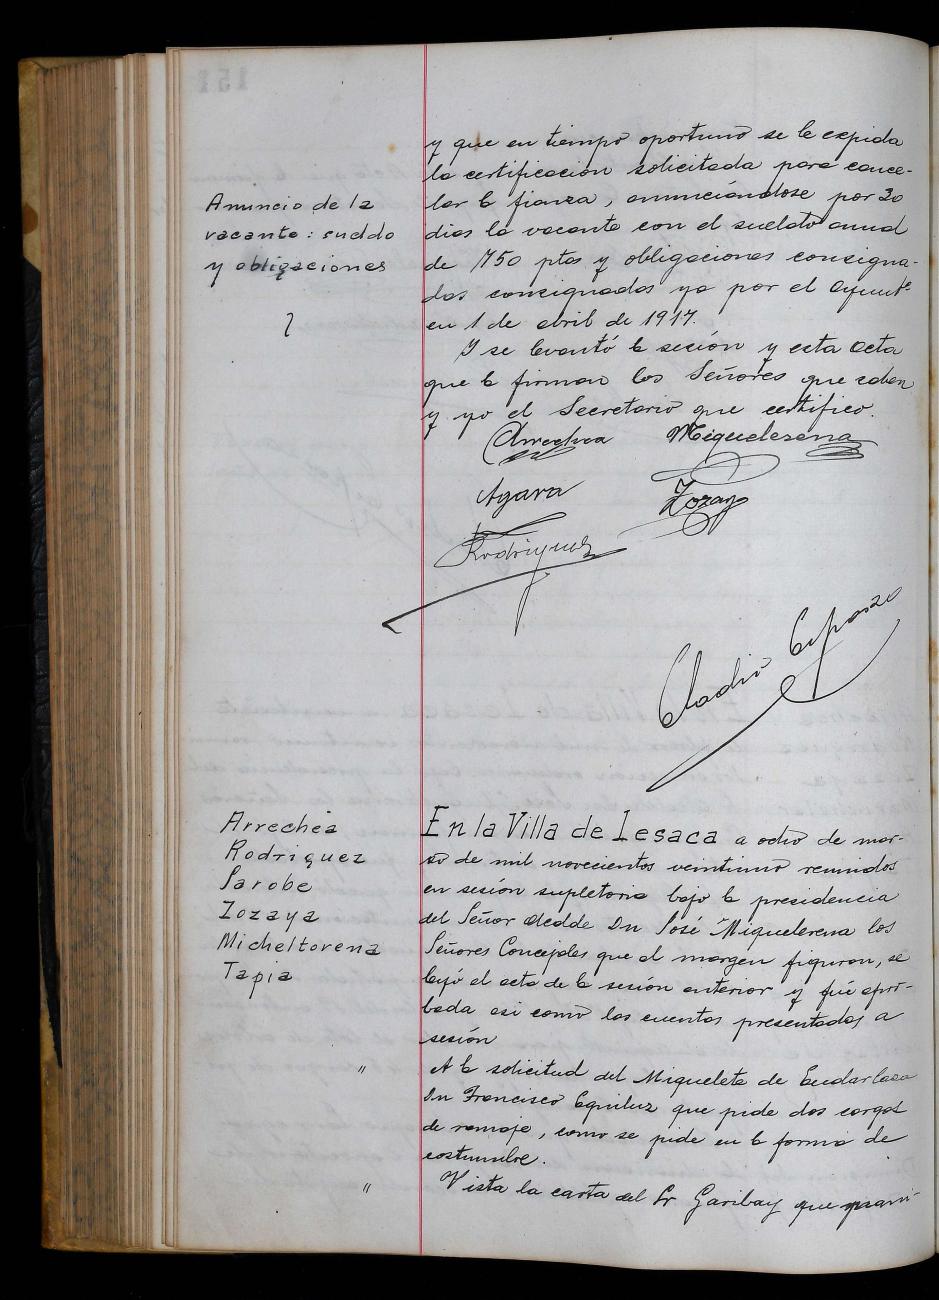 y que en tiempo oportuno se le expida
la certificacion solicitada para cance-
lar la fianza, anunciándose por 30
dias la vacante con el sueldo anual
de 750 ptas y obligaciones consigna-
das consignadas ya por el Ayuntº
en 1 de abril de 1917.
Anuncio de la
vacante: sueldo
y obligaciones
Y se levantó la sesión y esta acta
que la firman los Señores que saben
y yo el Secretario que certifico.
Arrechea Miguelerena
Agara Zozaya
Rodriguez
Eladio
Arrechea
Rodriguez
Sarobe
Zozaya
Micheltorena
Tapia
En la Villa de Lesaca a ocho de mar-
zo de mil novecientos veintiuno reunidos
en sesión supletoria bajo la presidencia
del Señor Alcalde Dn José Miguelerena los
Señores Concejales que al margen figuran, se
leyó el acta de la sesión anterior y fué apro-
bada asi como las cuentas presentadas a
sesión
" A la solicitud del Miquelete de Endarlaza
Dn Francisco Eguiluz que pide dos cargas
de ramaje, como se pide en la forma de
costumbre.
" Vista la carta del Sr Garibay que